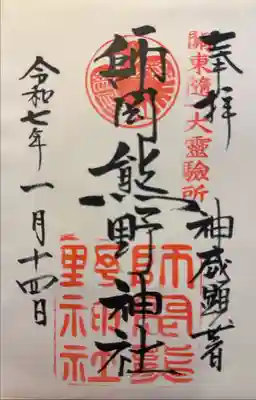 奉拝
關東随一大靈驗所
神威顕著
師岡熊野神社
師岡熊
野神社
令和七年一月十四日